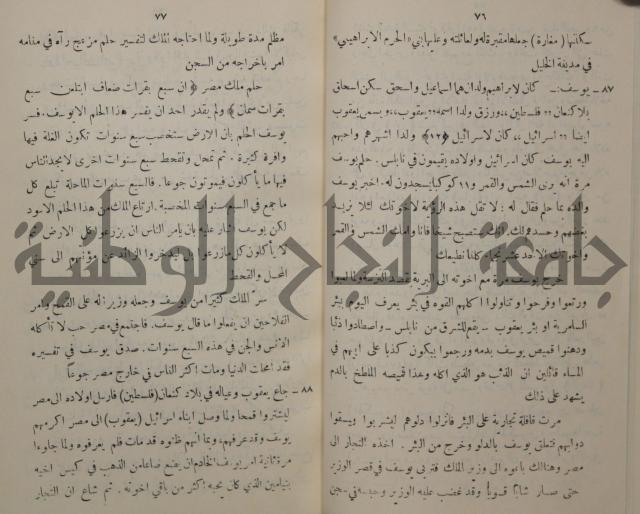 ٧٦
يكنها ( مغارة ) جعلها مقبرة له ولعائلته وعليها بني «الحرم الابراهيمي»
في مدينة الخليل
٨٧ – يوسف :- كان لابراهيم ولدان هما اسماعيل واسحق سكن اسحاق
بلاد كنعان ,, فلسطين ,, ورزق ولدا اسمه ,, يعقوب ,, ويسمى يعقوب
ايضا ,, اسرائيل ,, كان لاسرائيل ﴿١٢﴾ ولدا اشهرهم واحبهم
اليه يوسف كان اسرائيل واولاده يقيمون في نابلس . حلم يوسف
مرة انه يرى الشمس والقمر و ١١ كوكبا يسجدون له . اخبر يوسف
والده بما حلم فقال له : لا تقل هذه الرؤية لاخوتك لئلا تزيد
بغضهم وحسدهم لك ستصبح شيخا فانا وامك الشمس والقمر
واخوتك الاحد عشر نجما كلنا نطيعك
خرج يوسف مرة مع اخوته الى البرية بقصد النزهة ولما لعبوا
ورتعوا وفرحوا وتناولوا اكلهم القوه في بئر يعرف اليوم بئر
السامرية او بئر يعقوب – يقع للشرق من نابلس – واصطادوا ذئبا
ودهنوا قميص يوسف بدمه ورجعوا يبكون كذبا على ابيهم في
المساء قائلين ان الذئب هو الذي اكله وهذا قميصه الملطخ بالدم
يشهد على ذلك
مرت قافلة تجارية على البئر فانزلوا دلوهم ليشربوا ويسقوا
دوابهم فتعلق يوسف بالدلو وخرج من البئر . اخذه التجار الى
مصر وهنالك باعوه الى وزير الملك فتربى يوسف في قصر الوزير
حتى صار شابا قويا وقد غضب عليه الوزير وحبسه في سجن
٧٧
مظلم مدة طويلة ولما احتاجه الملك لتفسير حلم مزعج رآه في منامه
امر باخراجه من السجن
حلم ملك مصر ﴿ ان سبع بقرات ضعاف ابتلعن سبع
بقرات سمان ﴾ ولم يقدر احد ان يفسر هذا الحلم الا يوسف . فسر
يوسف الحلم بان الارض ستخصب سبع سنوات تكون الغلة فيها
وافرة كثيرة . ثم تمحل وتقحط سبع سنوات اخرى لا يجد الناس
فيها ما يأكلون فيموتون جوعا . فالسبع سنوات الماحلة تبلع كل
ما جمع في السبع سنوات المخصبة . ارتاع الملك من هذا الحلم الاسود
لكن يوسف اشار عليه بان يأمر الناس ان يزرعوا كل الارض ثم
لا يأكلون كل ما زرعوا بل ليدخروا الزائد عن مؤنتهم الى سني
المحل والقحط
سر الملك كثيرا من يوسف وجعله وزير له على القمح وامر
الفلاحين ان يفعلوا ما قال يوسف . فاجتمع في مصر حب لا تأكله
الانس والجن في هذه السبع سنوات . صدق يوسف في تفسيره
فقد امحلت الدنيا ومات اكثر الناس في خارج مصر جوعا
٨٨ – جاع يعقوب وعياله في بلاد كنعان (فلسطين) فارسل اولاده الى مصر
ليشتروا قمحا ولما وصل ابناء اسرائيل (يعقوب) الى مصر اكرمهم
يوسف وقد عرفهم ، وبما انهم ظنوه قد مات فلم يعرفوه ولما جاءوا
مرة ثانية امر يوسف الخادم ان يضع صاعا من الذهب في كيس اخيه
بنيامين الذي كان يحبه اكثر من باقي اخوته . ثم شاع ان التجار
جامعة النجاح الوطنية